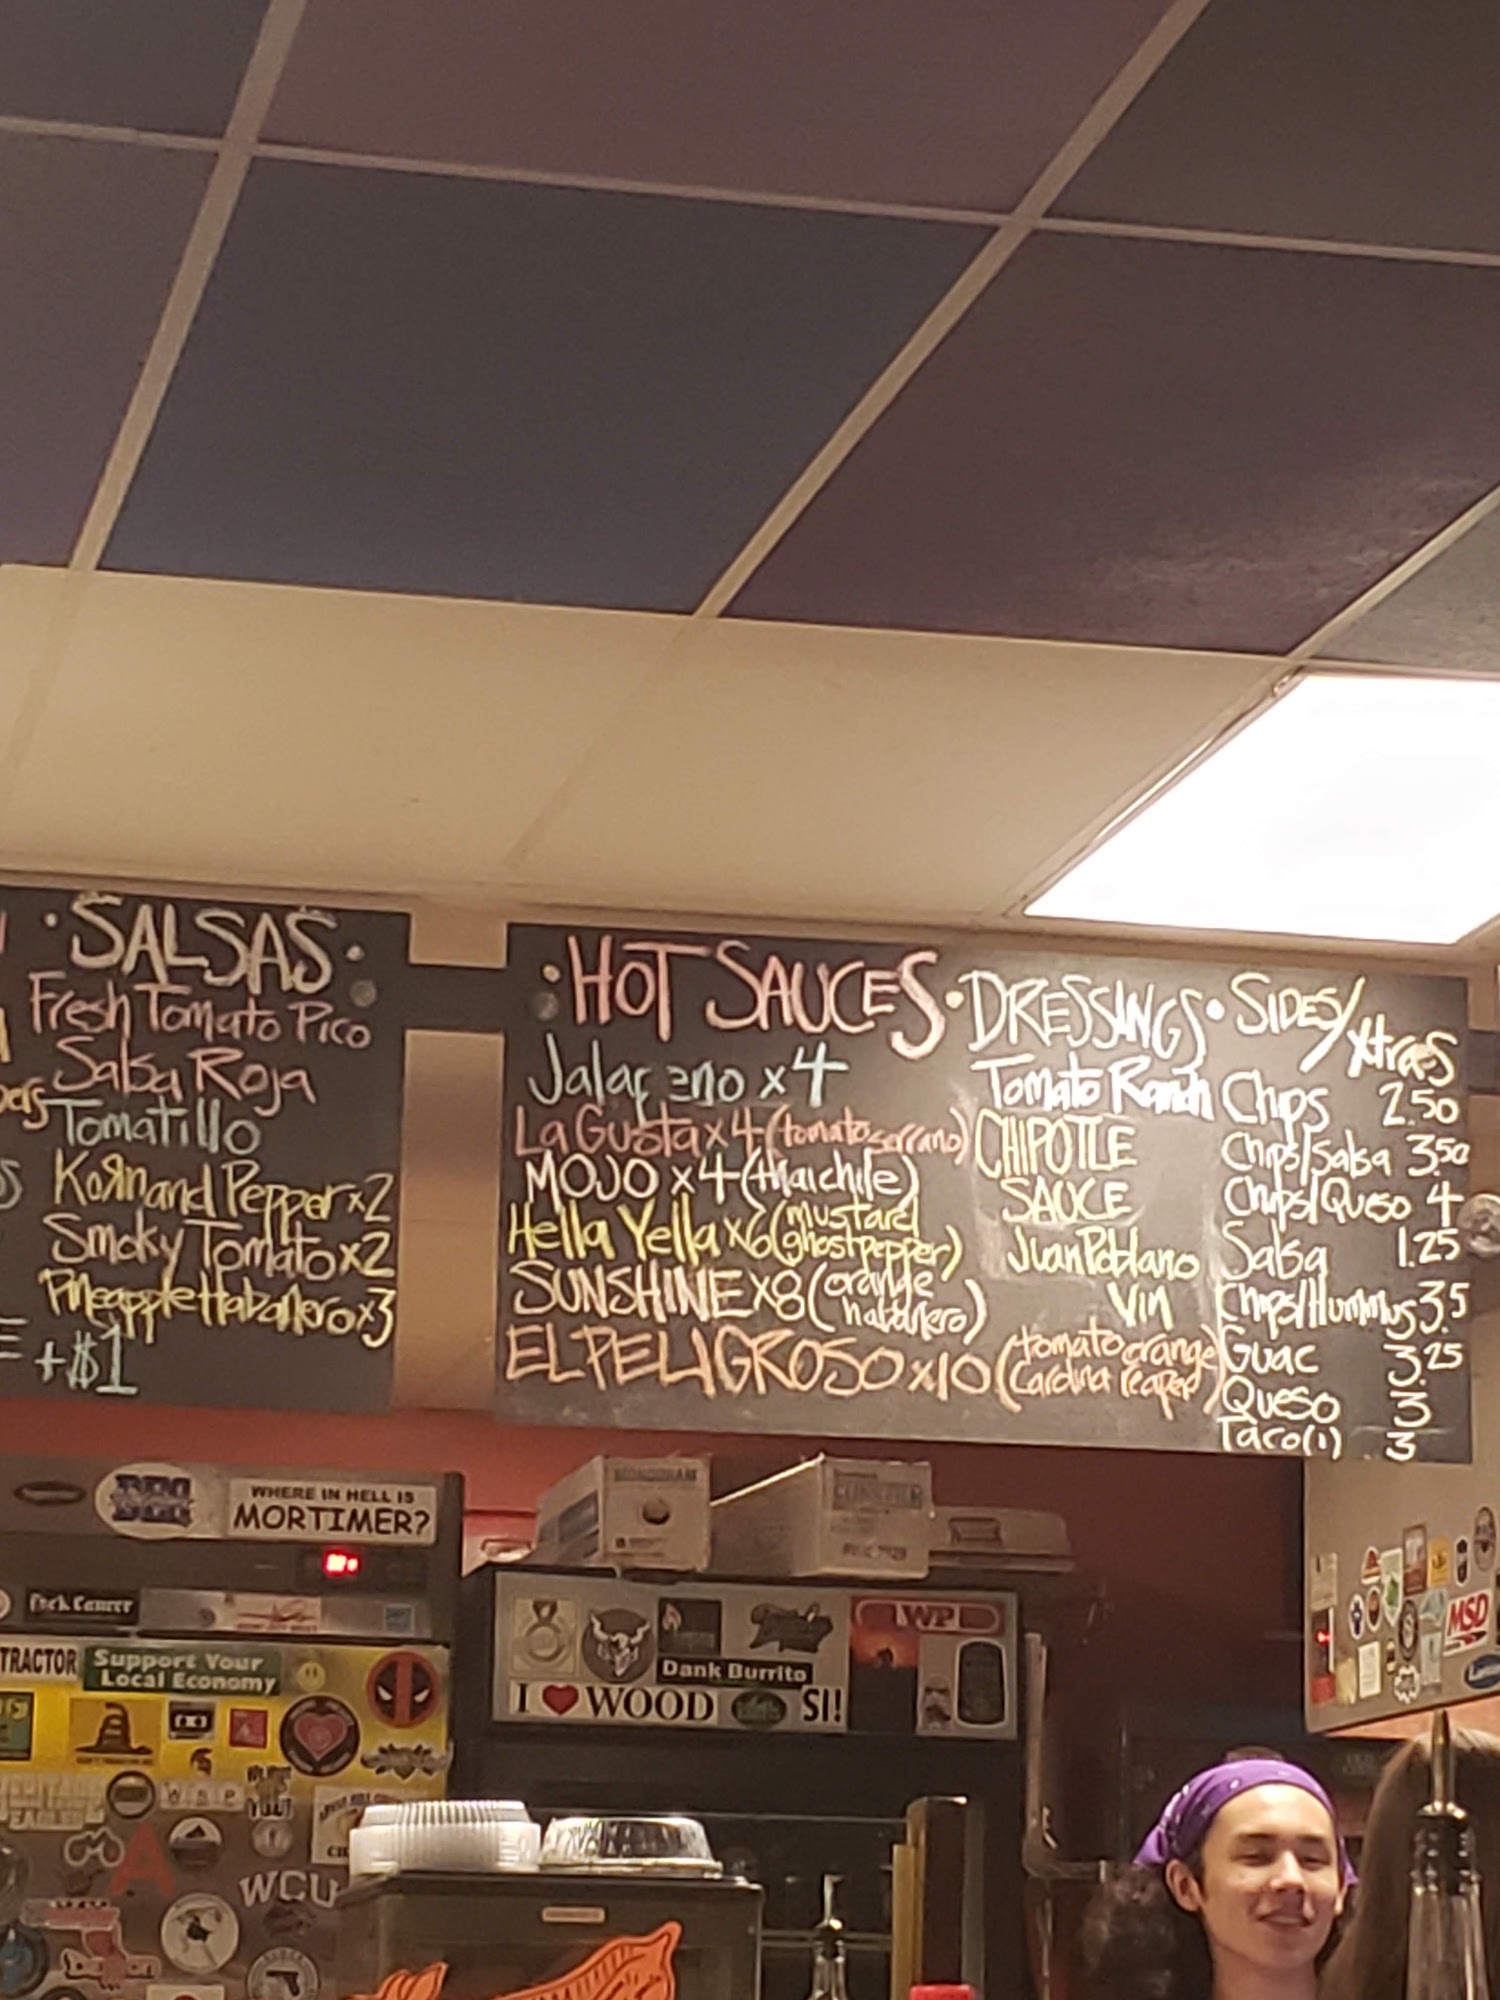 • SALSAS •
Fresh Tomato Pico
Salsa Roja
Tomatillo
Korn and Pepper x2
Smoky Tomato x2
Pineapple Habanero x3
+$1
• HOT SAUCES •
Jalapeno x 4
La Gusta x 4 (tomato serrano)
MOJO x 4 (thai chile)
Hella Yella x6 (mustard
ghost pepper)
SUNSHINE x8 (orange
habanero)
EL PELIGROSO x10 (tomato orange
Carolina reaper)
DRESSINGS •
Tomato Ranch
CHIPOTLE
SAUCE
Juan Poblano
Vin
SIDES/
Xtras
Chips 2.50
Chips/Salsa 3.50
Chips/Queso 4
Salsa 1.25
Chips/Hummus 3.5
Guac 3.25
Queso 3
Taco(1) 3
WHERE IN HELL IS
MORTIMER?
TRACTOR
Support Your
Local Economy
WSP
A
WCU
LWP
Dank Burrito
I ♥ WOOD
SI!
MSD